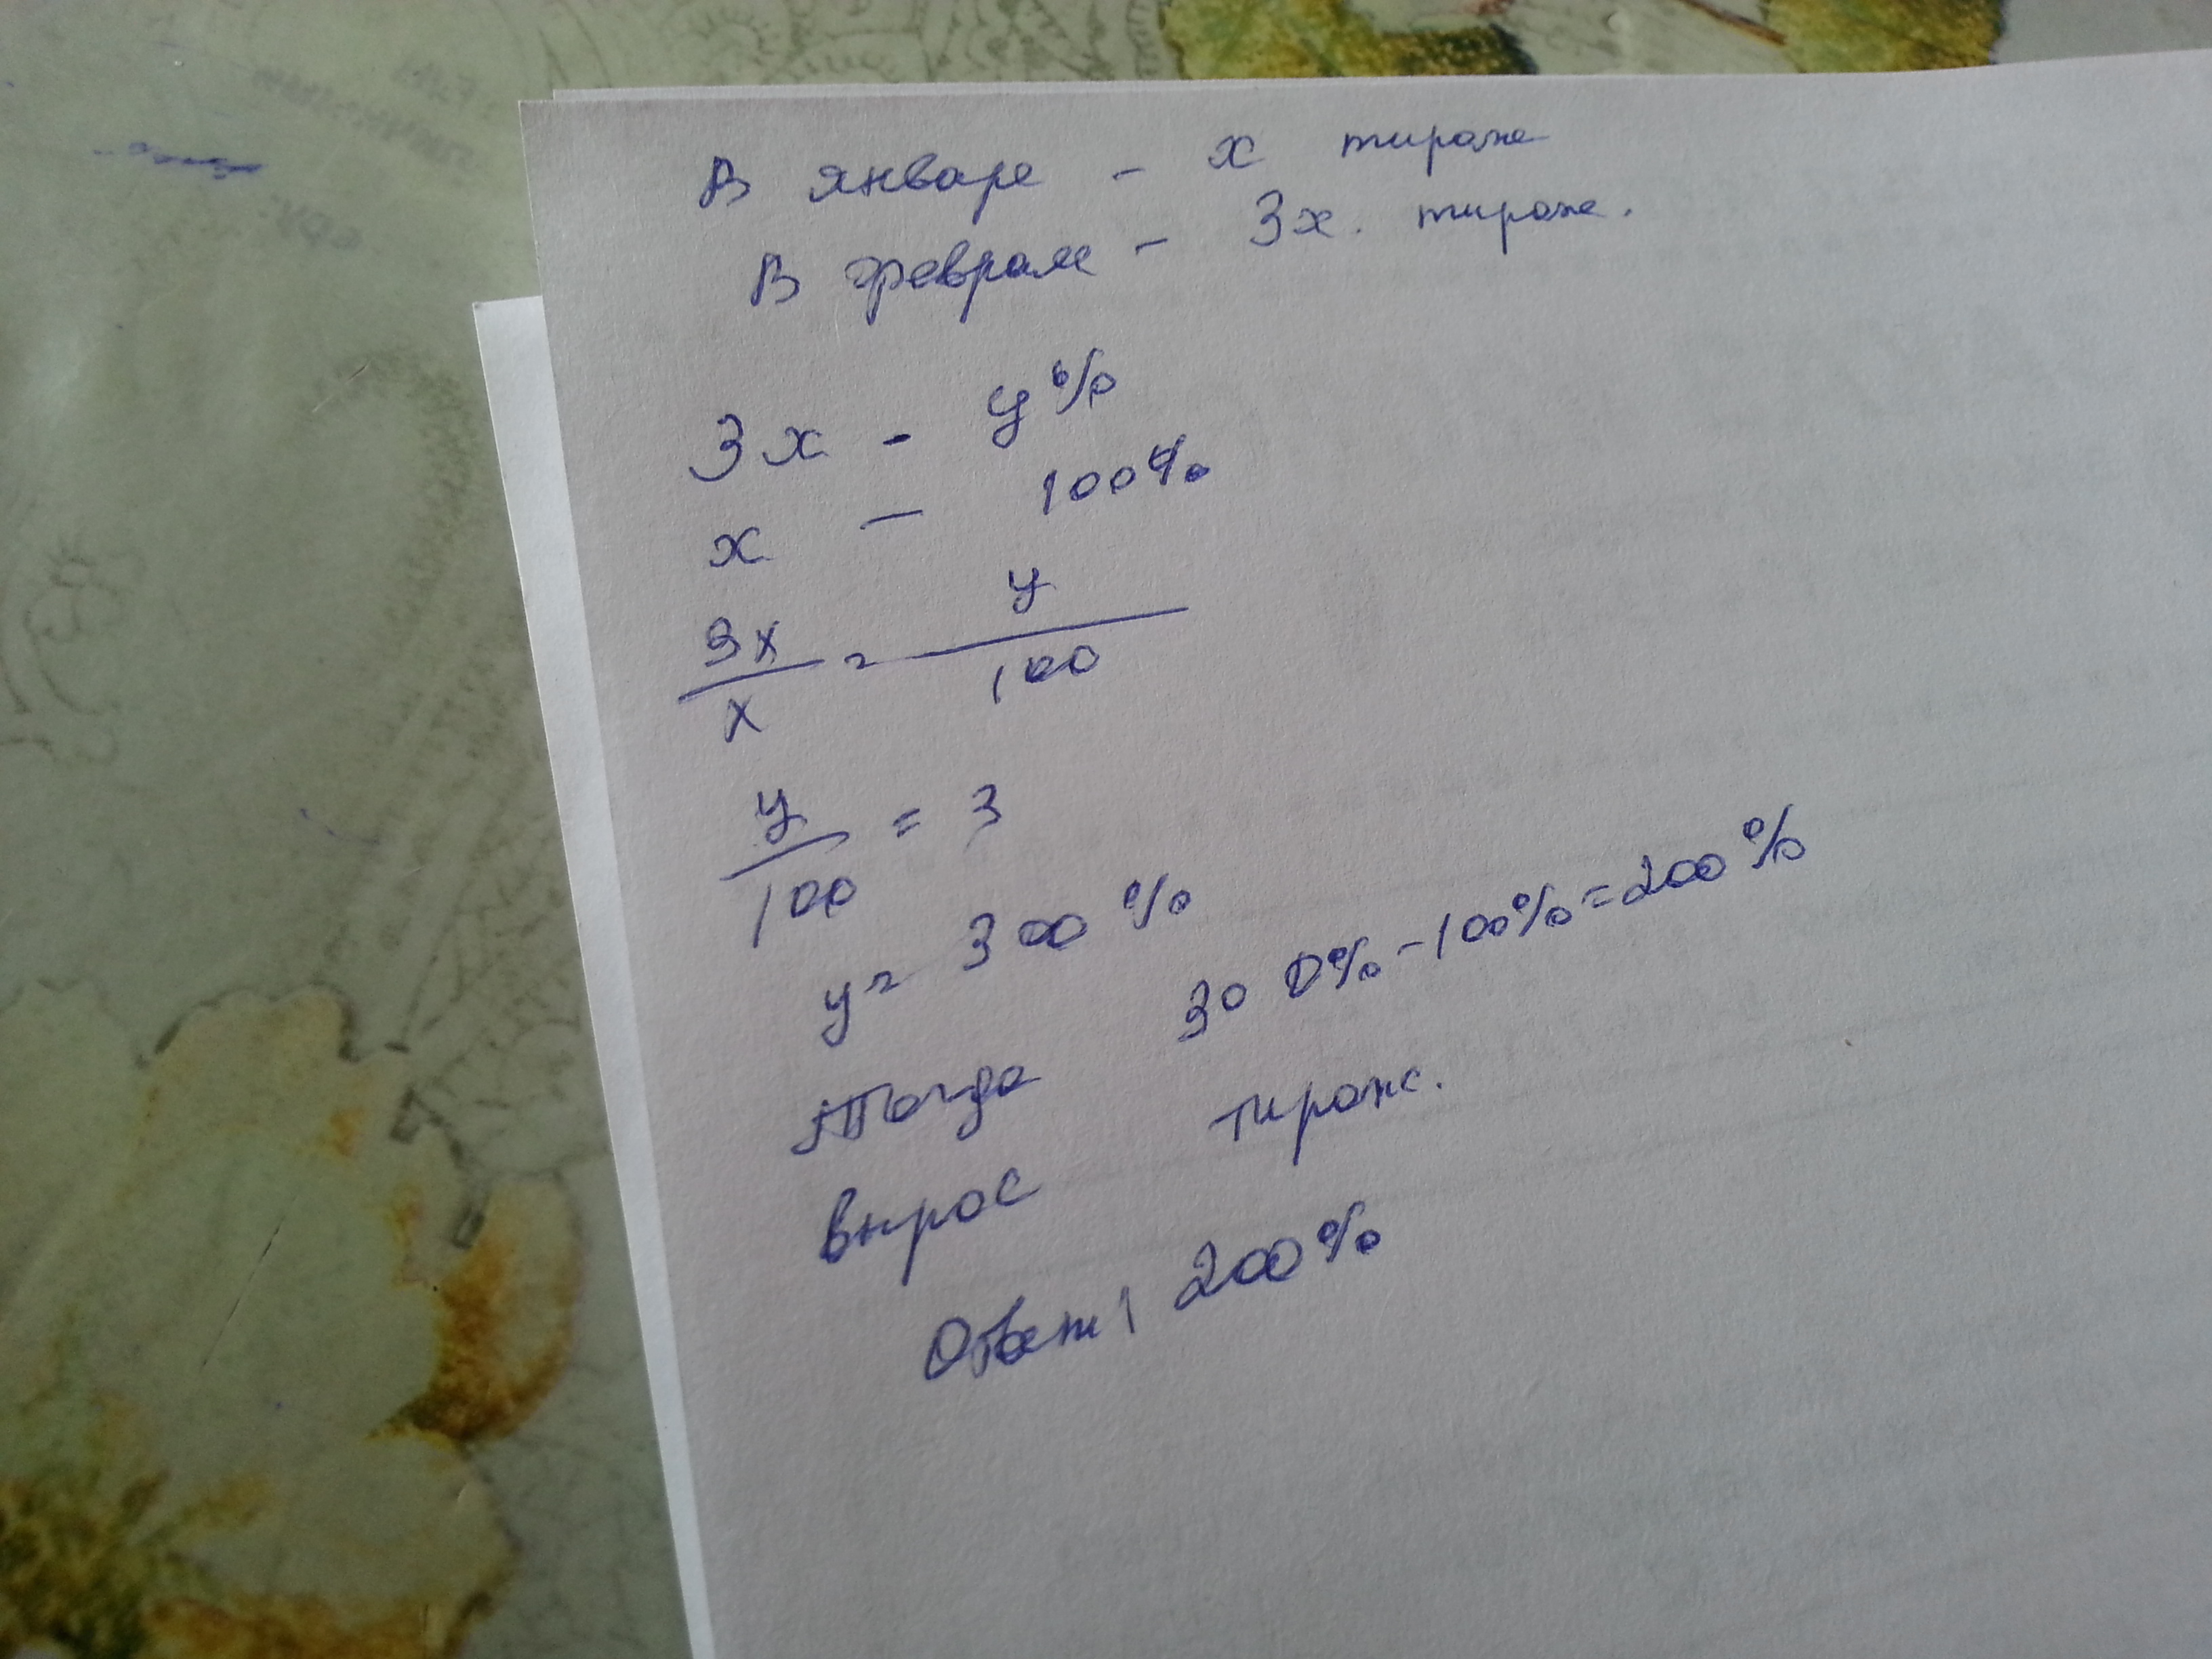 В январе - x тираж
В феврале - 3x. тираж.
3x - y%
x - 100%
3x/x = y/100
y/100 = 3
y = 300%
Тогда 300%-100%=200%
вырос тираж.
Ответ: 200%